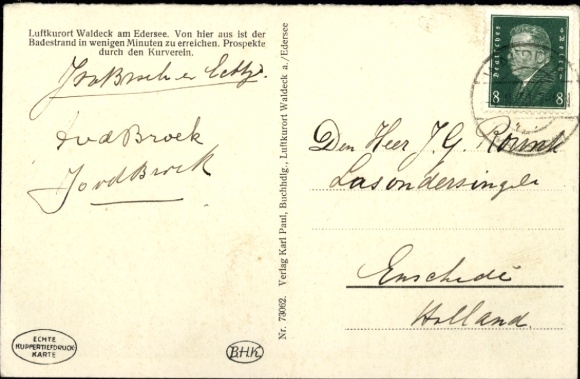 Luftkurort Waldeck am Edersee. Von hier aus ist der
Badestrand in wenigen Minuten zu erreichen. Prospekte
durch den Kurverein.
AvdBroek
JovdBroek
ECHTE
KUPFERTIEFDRUCK-
KARTE
B.H.K.
Nr. 73062. Verlag Karl Paul, Buchhdlg., Luftkurort Waldeck a./Edersee
Deutsches Reich
8 8
Den Heer J. G.
Lasondersingel
Enschedé
Holland.